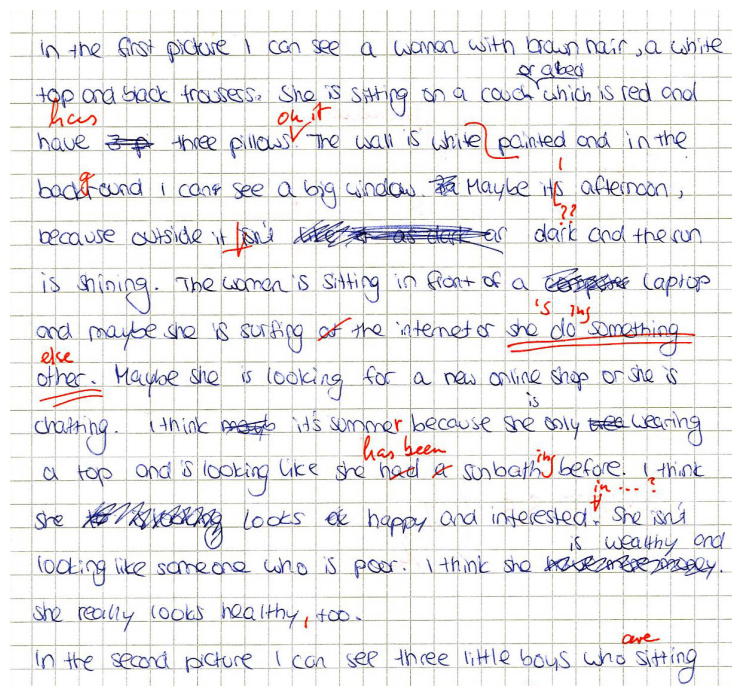 In the first picture I can see a woman with brown hair, a white
or a bed
top and black trousers. She is sitting on a couch which is red and
has on it
have three pillows. The wall is white painted and in the
g
background I can't see a big window. Maybe it's afternoon,
??
because outside it isn't dark and the sun
is shining. The women is sitting in front of a laptop
's ing
and maybe she is surfing the internet or she do something
else
other. Maybe she is looking for a new online shop or she is
is
chatting. I think it's summer because she only wearing
has been
a top and is looking like she had a sunbath ing before. I think
in ... ?
she looks happy and interested. She isn't
is wealthy and
looking like someone who is poor. I think she
she really looks healthy, too.
are
In the second picture I can see three little boys who sitting